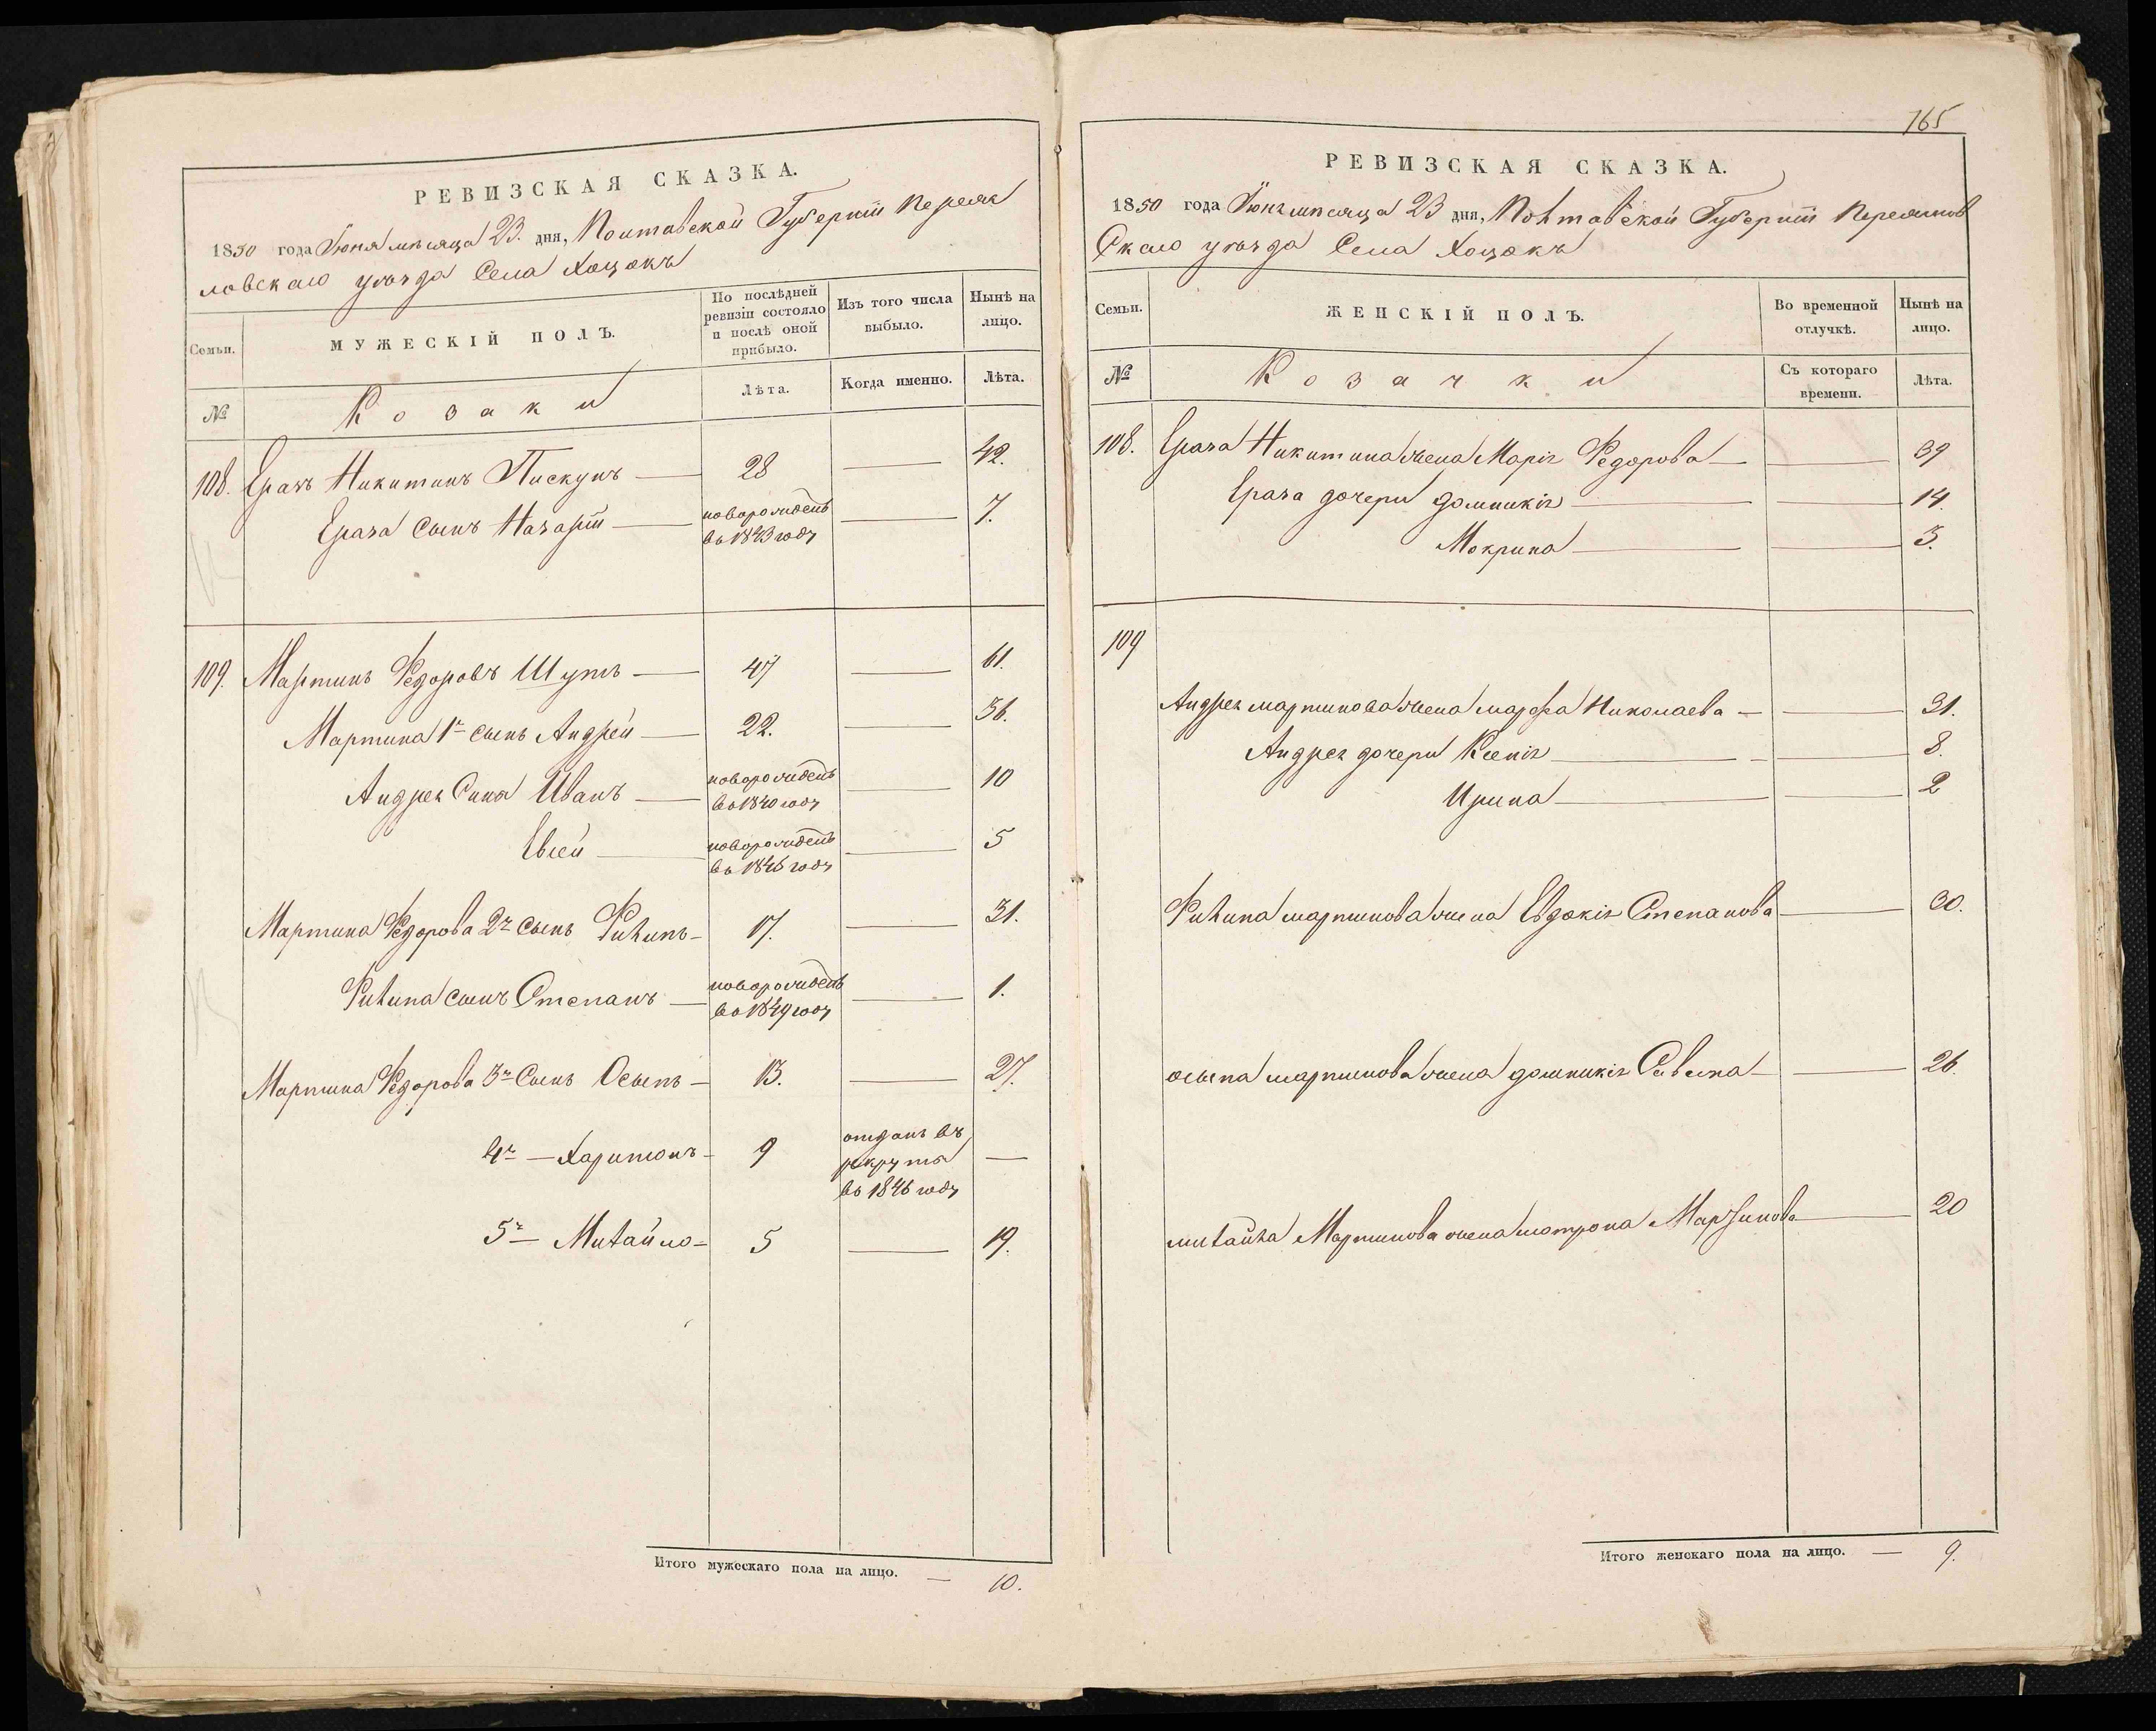 РЕВИЗСКАЯ СКАЗКА.
1850 года Іюня мѣсяца 23. дня, Полтавской Губерніи Переяс
ловскаго уѣзда Села Хоцокъ
Семьи.
МУЖЕСКІЙ ПОЛЪ.
По послѣдней ревизіи состояло и послѣ оной прибыло.
Изъ того числа выбыло.
Нынѣ на лицо.
№
Козаки
Лѣта.
Когда именно.
Лѣта.
108. Никитинъ Пискунъ — 28 — 42.
сынъ Назарій — новорожденъ въ 1843 году — 7.
109. Мартинъ Федоровъ Шутъ — 47 — 61.
Мартина 1й сынъ Андрей — 22. — 36.
Андрея Сыны Иванъ — новорожденъ въ 1840 году — 10
Евсей — новорожденъ въ 1845 году — 5
Мартина Федорова 2й сынъ Филипъ — 17. — 31.
Филипа сынъ Степанъ — новорожденъ въ 1849 году — 1.
Мартина Федорова 3й Сынъ Осыпъ — 13. — 27.
4й — Харитонъ — 9 отданъ въ рекруты въ 1846 году —
5й — Михайло — 5 — 19.
Итого мужескаго пола на лицо. — 10.
165
РЕВИЗСКАЯ СКАЗКА.
1850 года Іюня мѣсяца 23 дня, Полтавской Губерніи Переяслов
Скаго уѣзда Села Хоцокъ
Семьи.
ЖЕНСКІЙ ПОЛЪ.
Во временной отлучкѣ.
Нынѣ на лицо.
№
Козачки
Съ котораго времени.
Лѣта.
108. Никитина жена Марія Федорова — — 39
дочери домникія — — 14.
Мокрина — — 3.
109
Андрея мартинова жена марфа Николаева — — 31.
Андрея дочери Ксенія — — 8.
Ирина — — 2
Филипа мартинова жена Евдокія Степанова — 30.
осыпа мартинова жена домникія Савина — — 26
михайла Мартинова жена матрона — 20
Итого женскаго пола на лицо. — 9.